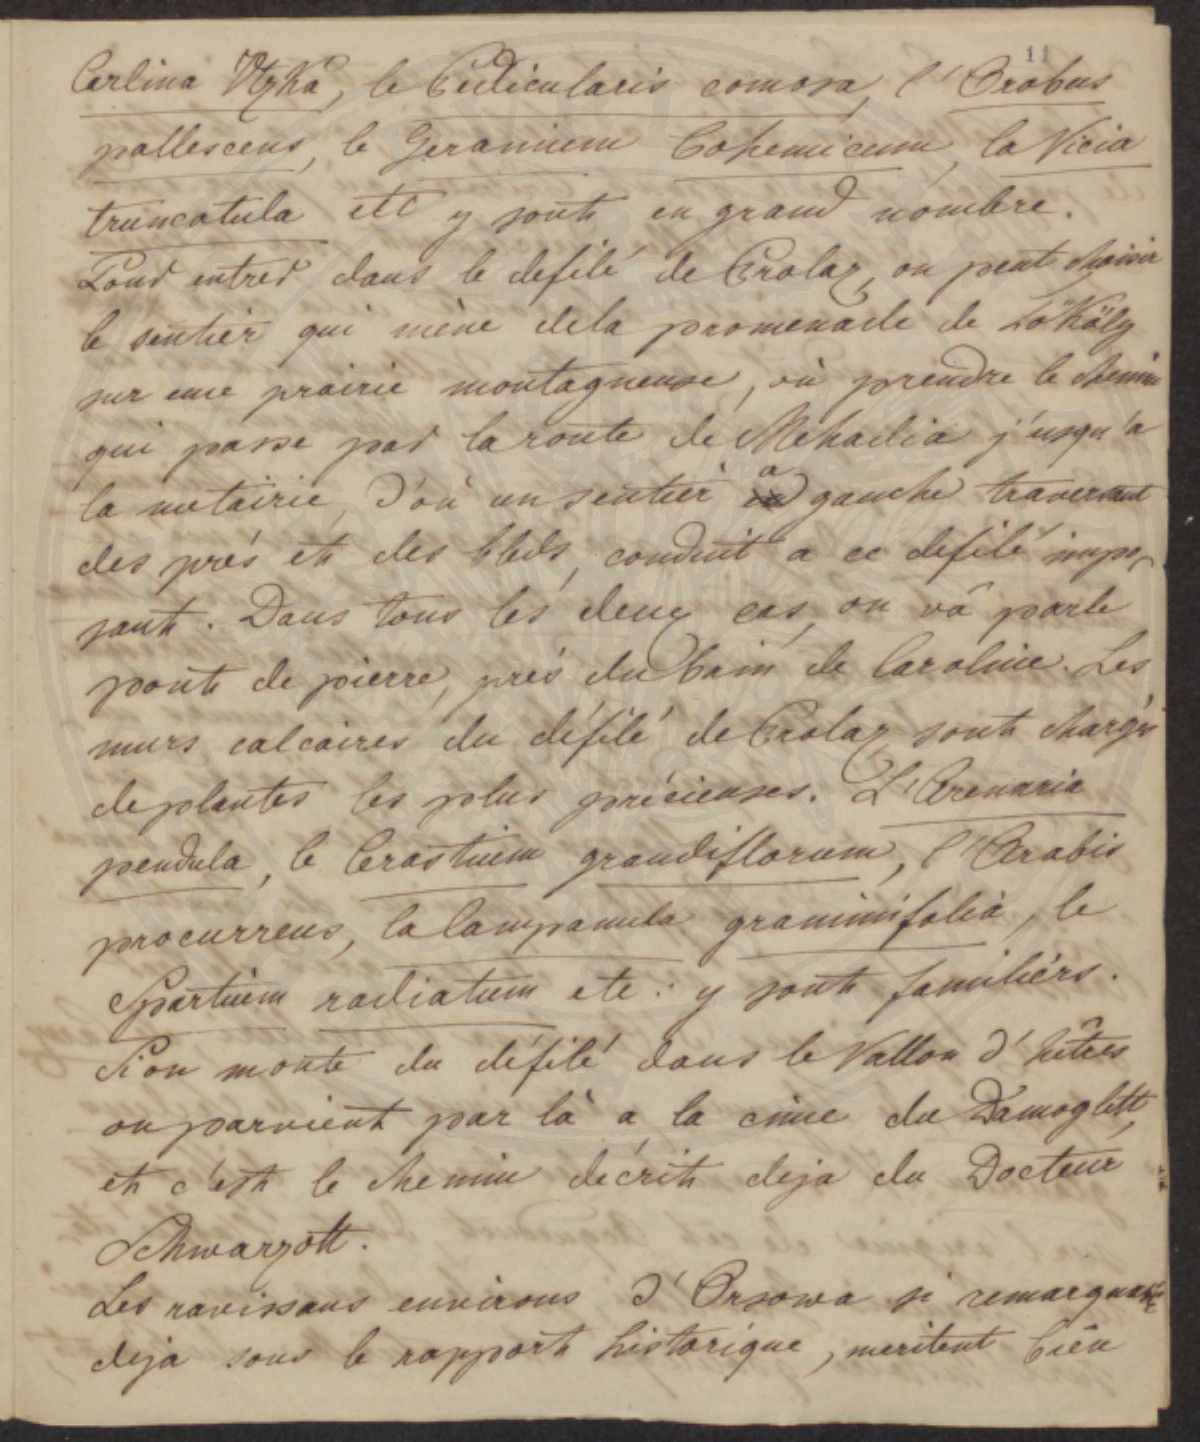 11
Carlina Utzka, le Pedicularis comosa, l'Orobus
pallescens, le Geranium bohemicum, la Vicia
truncatula etc y sont en grand nombre.
Pour entrer dans le defilé de Prolaz, on peut choisir
le sentier qui mène dela promenade de
sur une prairie montagneuse, où prendre le chemin
qui passe par la route de Mehadia j'usqu'a
la metairie, d'où un sentier a gauche traversant
des prés et des bleds, conduit a ce defilé impo-
sant. Dans tous les deux cas, on vâ parle
pont de pierre, près du bain de Caroline. Les
murs calcaires du défilé de Prolaz sont chargés
de plantes les plus précieuses. L'Arenaria
pendula, le Cerastium grandiflorum, l'Arabis
procurrens, la Campanula graminifolia, le
Spartium radiatum etc: y sont familiérs.
Si on monte du défilé dans le Vallon d'hêtres
on parvient par là a la cime du Damoglett,
et c'est le chemin décrit deja du Docteur
Schwarzott.
Les ravissans environs d'Orsowa si remarquable
deja sous le rapport historique, meritent bien